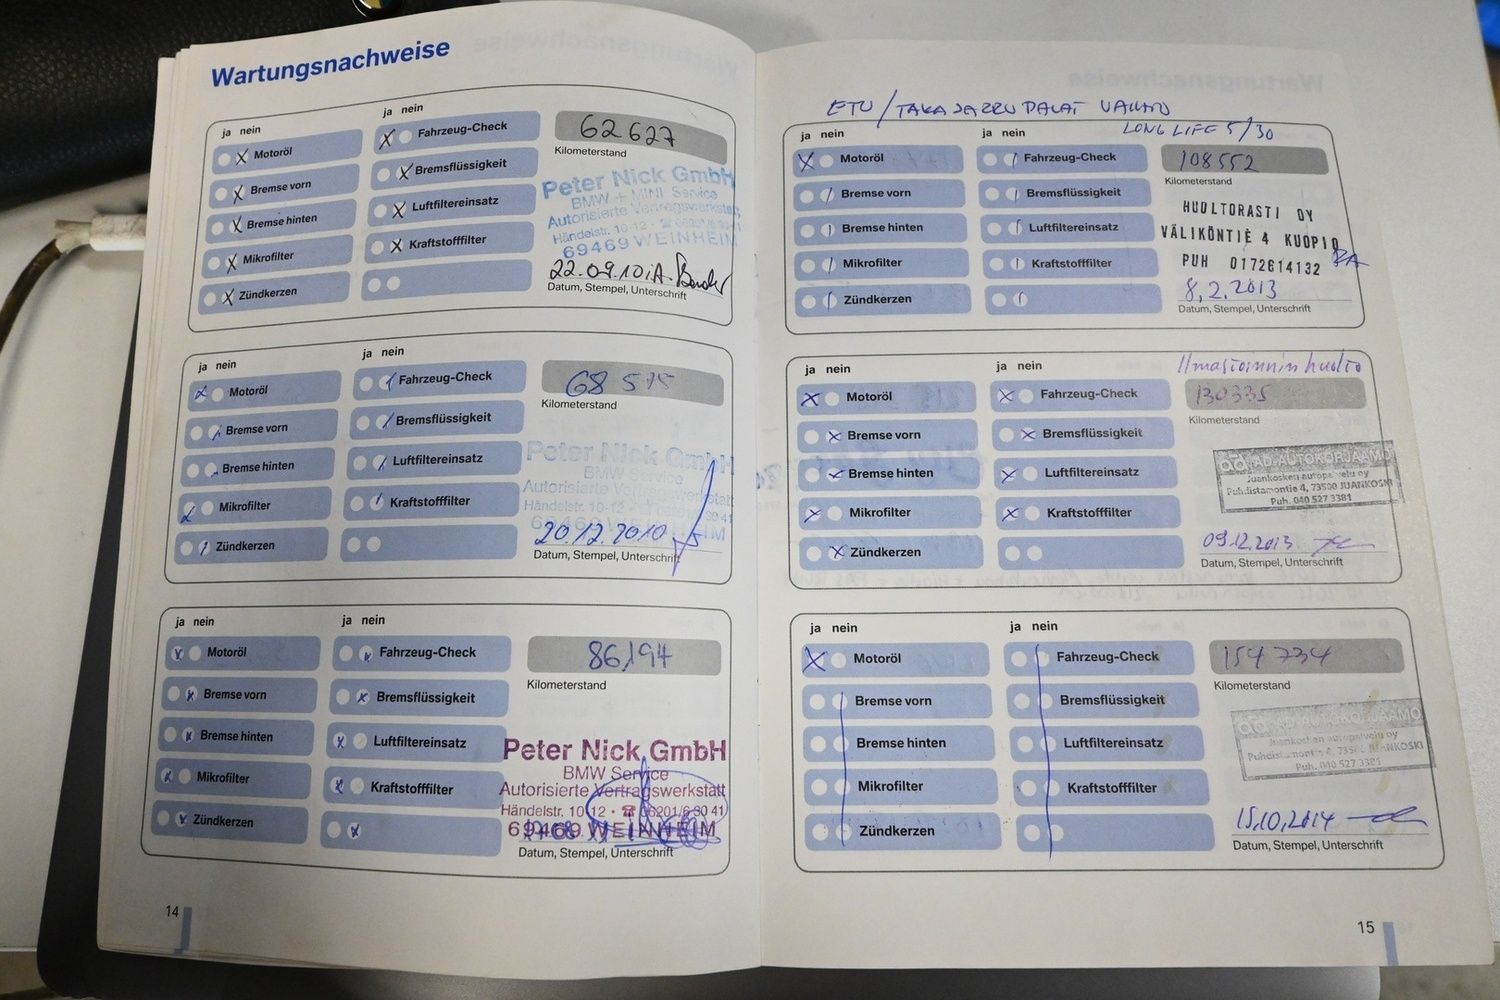 Wartungsnachweise
ja nein
ja nein
Motoröl
Bremse vorn
Bremse hinten
Mikrofilter
Zündkerzen
Fahrzeug-Check
Bremsflüssigkeit
Luftfiltereinsatz
Kraftstofffilter
62627
Kilometerstand
Peter Nick GmbH
BMW + MINI Service
Autorisierte Vertragswerkstatt
Händelstr. 10-12
69469 WEINHEIM
22.09.10 i.A.
Datum, Stempel, Unterschrift
ja nein
ja nein
Motoröl
Bremse vorn
Bremse hinten
Mikrofilter
Zündkerzen
Fahrzeug-Check
Bremsflüssigkeit
Luftfiltereinsatz
Kraftstofffilter
Kilometerstand
Peter Nick GmbH
BMW Service
Autorisierte Vertragswerkstatt
Händelstr. 10-12
69469 WEINHEIM
20.12.2010
Datum, Stempel, Unterschrift
ja nein
ja nein
Motoröl
Bremse vorn
Bremse hinten
Mikrofilter
Zündkerzen
Fahrzeug-Check
Bremsflüssigkeit
Luftfiltereinsatz
Kraftstofffilter
86194
Kilometerstand
Peter Nick GmbH
BMW Service
Autorisierte Vertragswerkstatt
Händelstr. 10-12 · ☎ 06201/6 30 41
69469 WEINHEIM
Datum, Stempel, Unterschrift
14
ETU/TAKA JARRU PALAT VAIHTO
LONG LIFE 5/30
ja nein
ja nein
Motoröl
Bremse vorn
Bremse hinten
Mikrofilter
Zündkerzen
Fahrzeug-Check
Bremsflüssigkeit
Luftfiltereinsatz
Kraftstofffilter
108552
Kilometerstand
HUOLTORASTI OY
VÄLIKÖNTIE 4 KUOPIO
PUH 0172614132
8.2.2013
Datum, Stempel, Unterschrift
Ilmastoinnin huolto
ja nein
ja nein
Motoröl
Bremse vorn
Bremse hinten
Mikrofilter
Zündkerzen
Fahrzeug-Check
Bremsflüssigkeit
Luftfiltereinsatz
Kraftstofffilter
130335
Kilometerstand
AD-AUTOKORJAAMO
Juankosken autopalvelu oy
Puhdistamontie 4, 73500 JUANKOSKI
Puh. 040 527 3381
09.12.2013
Datum, Stempel, Unterschrift
ja nein
ja nein
Motoröl
Bremse vorn
Bremse hinten
Mikrofilter
Zündkerzen
Fahrzeug-Check
Bremsflüssigkeit
Luftfiltereinsatz
Kraftstofffilter
154734
Kilometerstand
AD-AUTOKORJAAMO
Juankosken autopalvelu oy
Puhdistamontie 4, 73500 JUANKOSKI
Puh. 040 527 3381
15.10.2014
Datum, Stempel, Unterschrift
15